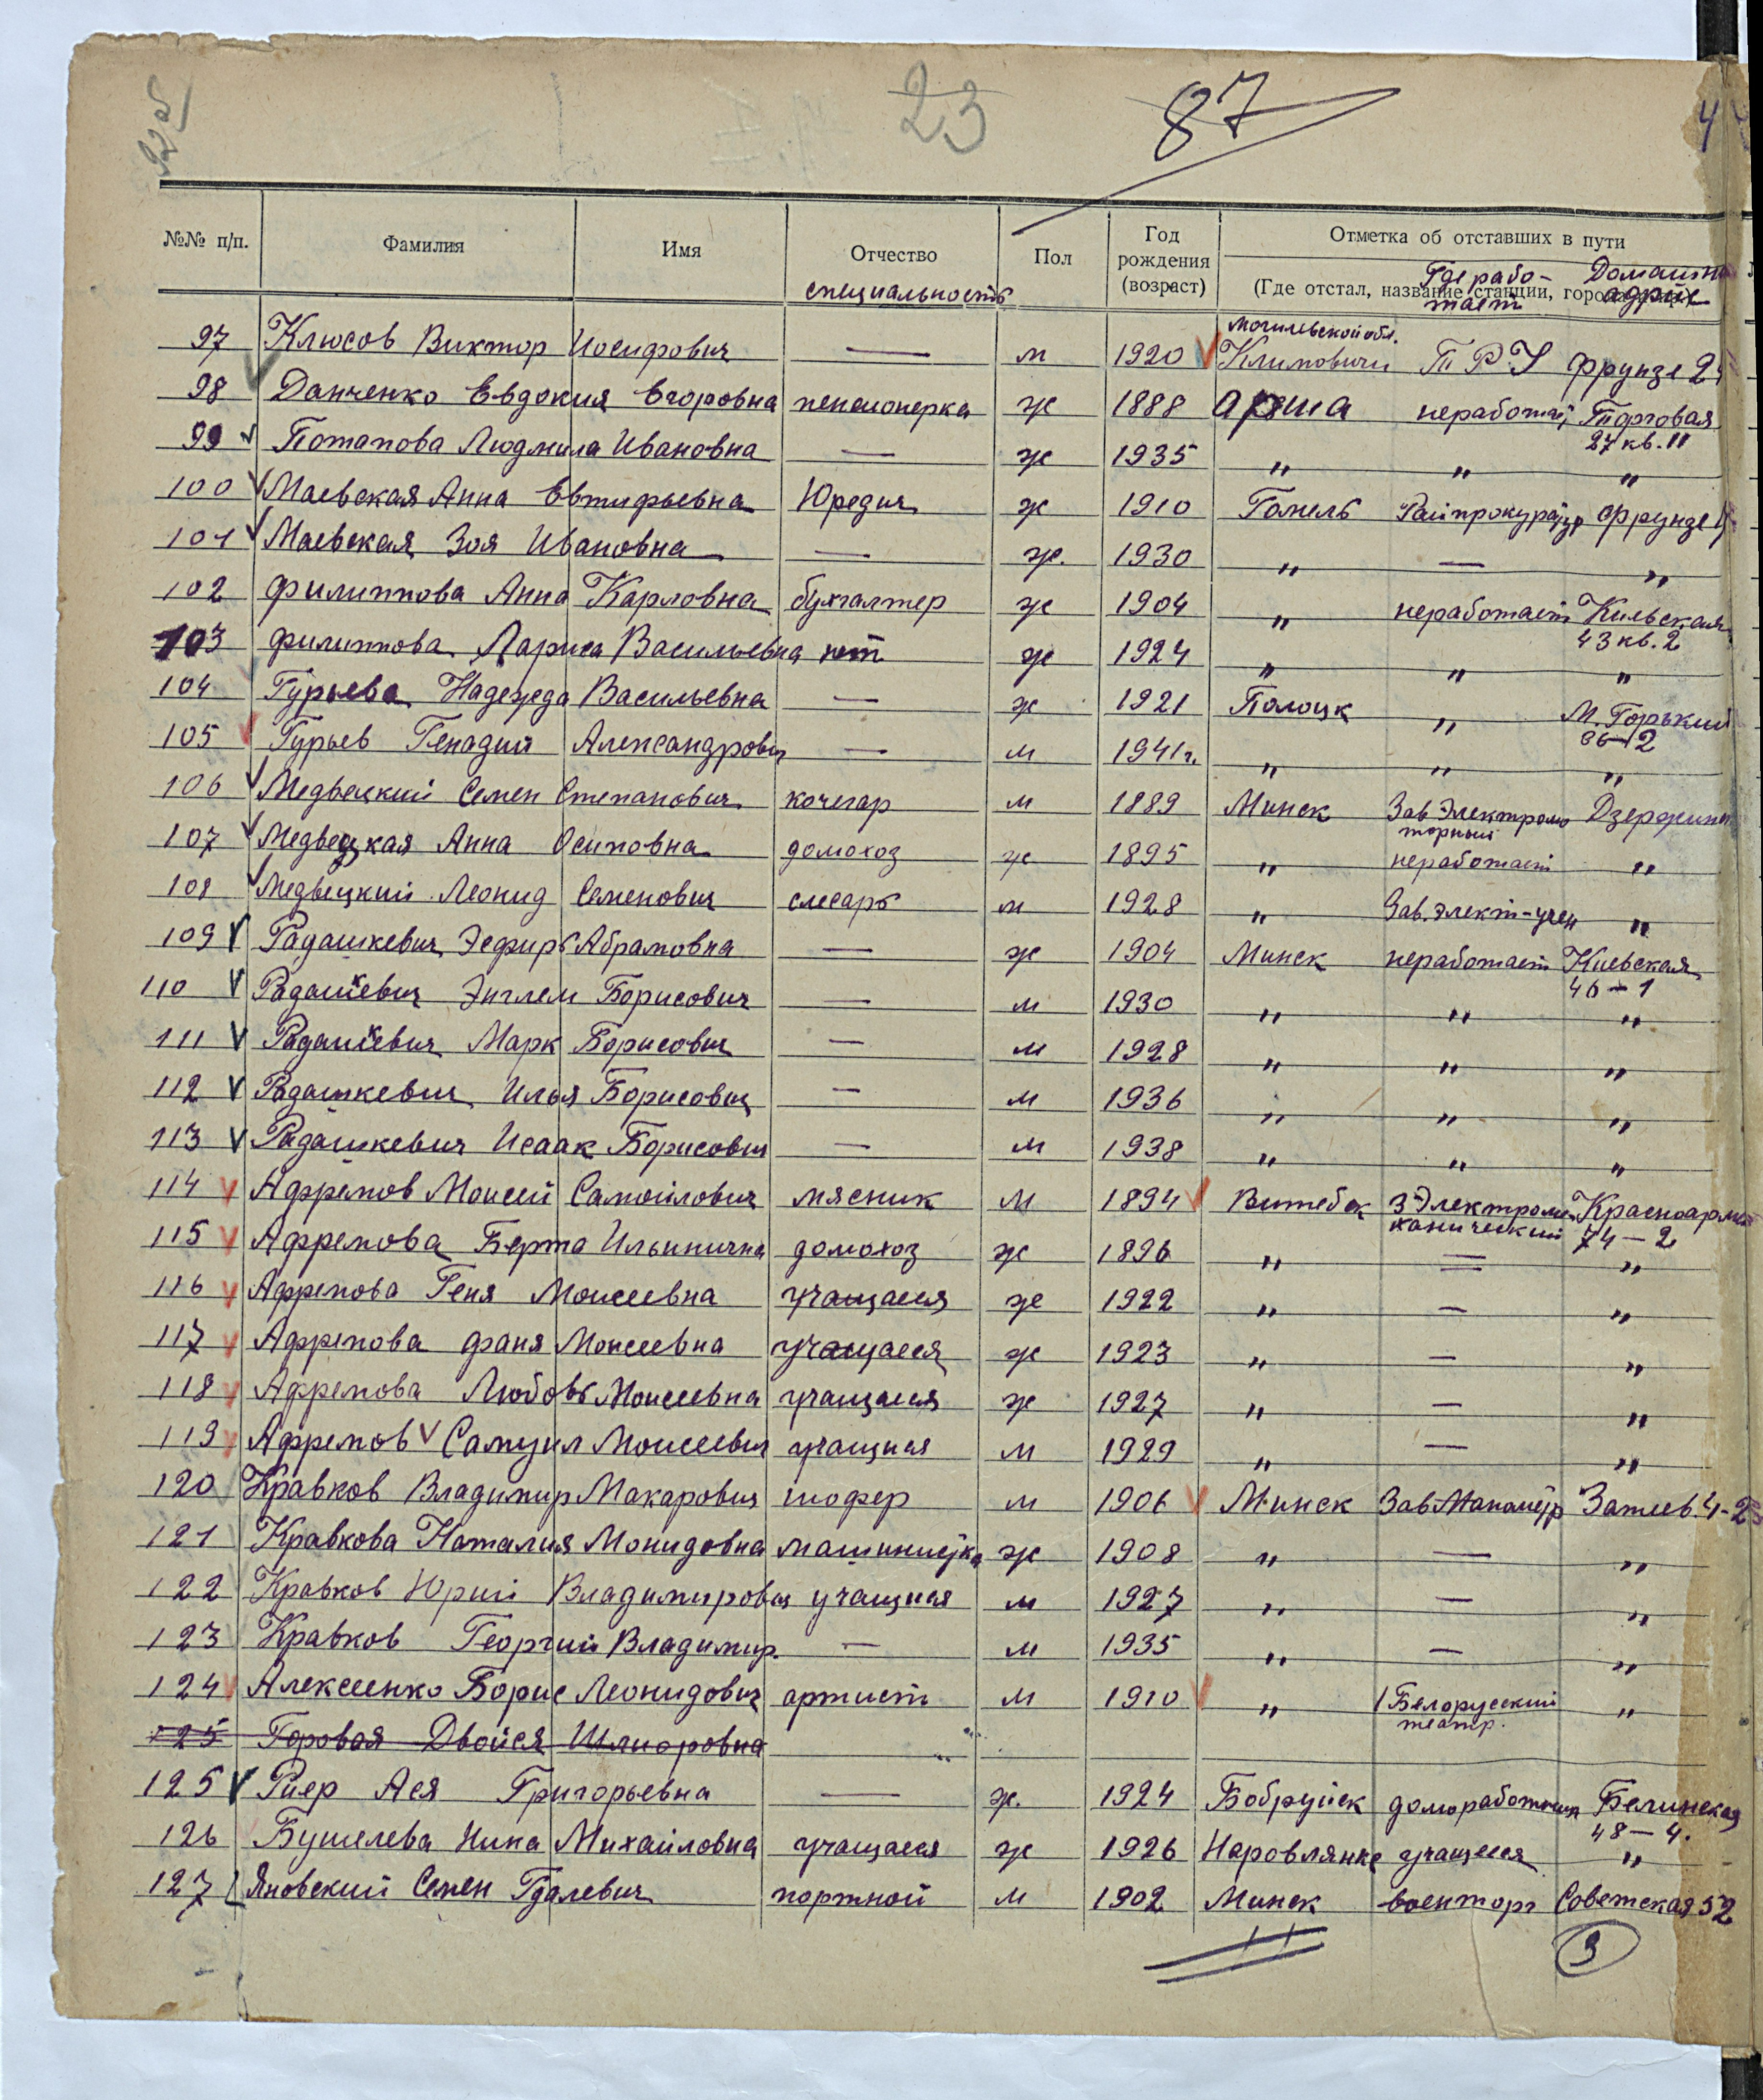 23
87
№№ п/п. Фамилия Имя Отчество Пол Год рождения (возраст) Отметка об отставших в пути
(Где отстал, название станции, города
специальность Где работает Домашн адрес
97 Клюсов Виктор Иосифович — м 1920 Могилевской обл. Климовичи Т Р У Фрунзе 2
98 Данченко Евдокия Егоровна пенсионерка ж 1888 Орша неработ Торговая 27 кв. 11
99 Потапова Людмила Ивановна — ж 1935 „ „ „
100 Маевская Анна Евтифьевна Юредич ж 1910 Гомель Райпрокурату Фрунзе
101 Маевская Зоя Ивановна — ж. 1930 „ — „
102 Филиппова Анна Карловна бухгалтер ж 1904 „ неработает Киевская 43 кв. 2
103 Филиппова Лариса Васильевна нет ж 1924 „ „ „
104 Гурьева Надежда Васильевна — ж 1921 Полоцк „ М. Горький 86-2
105 Гурьев Генадий Александрович — м 1941 г. „ „ „
106 Медвецкий Семен Степанович кочегар м 1889 Минск Зав Электромоторный Дзержинс
107 Медвецкая Анна Осиповна домохоз ж 1895 „ неработает „
108 Медвецкий Леонид Семенович слесарь м 1928 „ Зав. элект-учен „
109 Радашкевич Эсфирь Абрамовна — ж 1904 Минск неработает Киевская 46-1
110 Радашкевич Энглем Борисович — м 1930 „ „ „
111 Радашкевич Марк Борисович — м 1928 „ „ „
112 Радашкевич Илья Борисович — м 1936 „ „ „
113 Радашкевич Исаак Борисович — м 1938 „ „ „
114 Афремов Моисей Самойлович мясник м 1894 Витебск З Электромеханический Красноарме 74-2
115 Афремова Берта Ильинична домохоз ж 1896 „ — „
116 Афремова Геня Моисеевна учащаеся ж 1922 „ — „
117 Афремова Фаня Моисеевна учащаеся ж 1923 „ — „
118 Афремова Любовь Моисеевна учащаеся ж 1927 „ — „
119 Афремов Самуил Моисеевич учащийся м 1929 „ — „
120 Кравков Владимир Макарович шофер м 1906 Минск Зав. Манометр Затеев. 4-2
121 Кравкова Наталия Монидовна машинистка ж 1908 „ — „
122 Кравков Юрий Владимирович учащийся м 1927 „ — „
123 Кравков Георгий Владимир. — м 1935 „ — „
124 Алексеенко Борис Леонидович артист м 1910 „ 1 Белорусский театр. „
125 Горовая Двойся Шлиоровна
125 Риер Ася Григорьевна — ж. 1924 Бобруйск домработница Белинская 48-4.
126 Бушелева Нина Михайловна учащаеся ж 1926 Наровлянке учащееся „
127 Яновский Семен Гдалевич портной м 1902 Минск военторг Советская 52
3